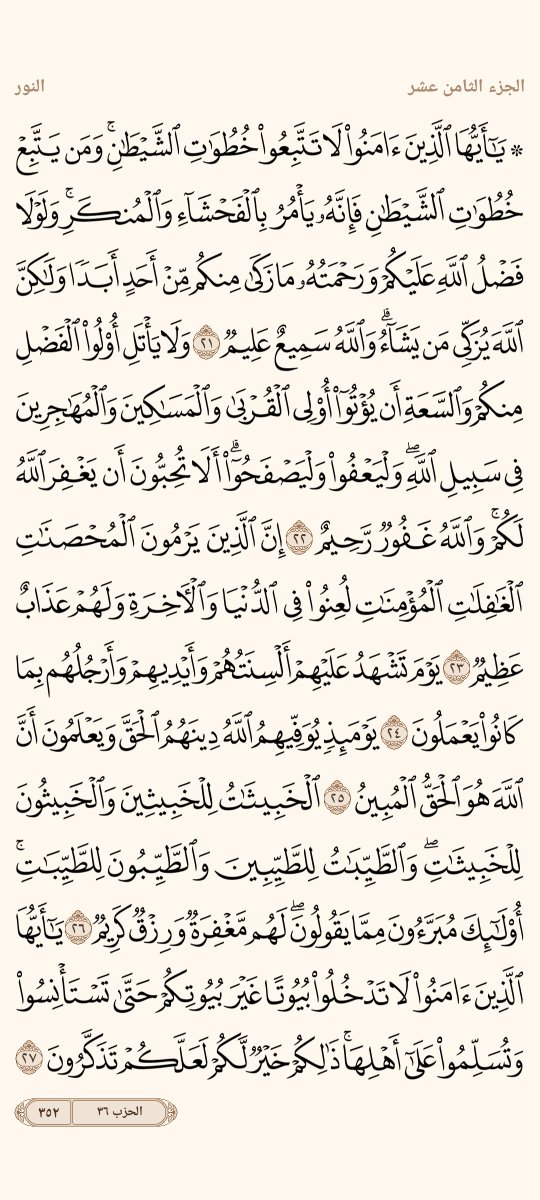 الجزء الثامن عشر
النور
۞ يَٰٓأَيُّهَا ٱلَّذِينَ ءَامَنُوا۟ لَا تَتَّبِعُوا۟ خُطُوَٰتِ ٱلشَّيْطَٰنِ ۚ وَمَن يَتَّبِعْ
خُطُوَٰتِ ٱلشَّيْطَٰنِ فَإِنَّهُۥ يَأْمُرُ بِٱلْفَحْشَآءِ وَٱلْمُنكَرِ ۚ وَلَوْلَا
فَضْلُ ٱللَّهِ عَلَيْكُمْ وَرَحْمَتُهُۥ مَا زَكَىٰ مِنكُم مِّنْ أَحَدٍ أَبَدًا وَلَٰكِنَّ
ٱللَّهَ يُزَكِّى مَن يَشَآءُ ۗ وَٱللَّهُ سَمِيعٌ عَلِيمٌ ٢١ وَلَا يَأْتَلِ أُو۟لُوا۟ ٱلْفَضْلِ
مِنكُمْ وَٱلسَّعَةِ أَن يُؤْتُوٓا۟ أُو۟لِى ٱلْقُرْبَىٰ وَٱلْمَسَٰكِينَ وَٱلْمُهَٰجِرِينَ
فِى سَبِيلِ ٱللَّهِ ۖ وَلْيَعْفُوا۟ وَلْيَصْفَحُوٓا۟ ۗ أَلَا تُحِبُّونَ أَن يَغْفِرَ ٱللَّهُ
لَكُمْ ۚ وَٱللَّهُ غَفُورٌ رَّحِيمٌ ٢٢ إِنَّ ٱلَّذِينَ يَرْمُونَ ٱلْمُحْصَنَٰتِ
ٱلْغَٰفِلَٰتِ ٱلْمُؤْمِنَٰتِ لُعِنُوا۟ فِى ٱلدُّنْيَا وَٱلْءَاخِرَةِ وَلَهُمْ عَذَابٌ
عَظِيمٌ ٢٣ يَوْمَ تَشْهَدُ عَلَيْهِمْ أَلْسِنَتُهُمْ وَأَيْدِيهِمْ وَأَرْجُلُهُم بِمَا
كَانُوا۟ يَعْمَلُونَ ٢٤ يَوْمَئِذٍ يُوَفِّيهِمُ ٱللَّهُ دِينَهُمُ ٱلْحَقَّ وَيَعْلَمُونَ أَنَّ
ٱللَّهَ هُوَ ٱلْحَقُّ ٱلْمُبِينُ ٢٥ ٱلْخَبِيثَٰتُ لِلْخَبِيثِينَ وَٱلْخَبِيثُونَ
لِلْخَبِيثَٰتِ ۖ وَٱلطَّيِّبَٰتُ لِلطَّيِّبِينَ وَٱلطَّيِّبُونَ لِلطَّيِّبَٰتِ ۚ
أُو۟لَٰٓئِكَ مُبَرَّءُونَ مِمَّا يَقُولُونَ ۖ لَهُم مَّغْفِرَةٌ وَرِزْقٌ كَرِيمٌ ٢٦ يَٰٓأَيُّهَا
ٱلَّذِينَ ءَامَنُوا۟ لَا تَدْخُلُوا۟ بُيُوتًا غَيْرَ بُيُوتِكُمْ حَتَّىٰ تَسْتَأْنِسُوا۟
وَتُسَلِّمُوا۟ عَلَىٰٓ أَهْلِهَا ۚ ذَٰلِكُمْ خَيْرٌ لَّكُمْ لَعَلَّكُمْ تَذَكَّرُونَ ٢٧
الحزب ٣٦
٣٥٢